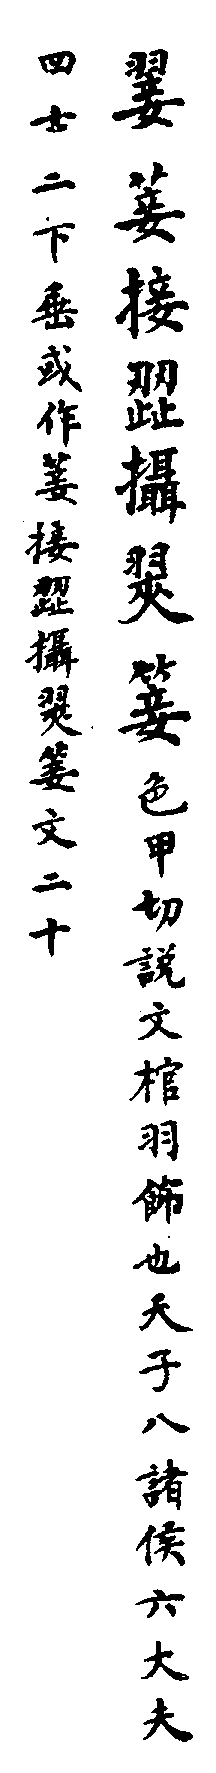 翣萋接歰攝翜箑色甲切說文棺羽飾也天子八諸侯六大夫
四士二下垂或作萋接歰攝翜箑文二十